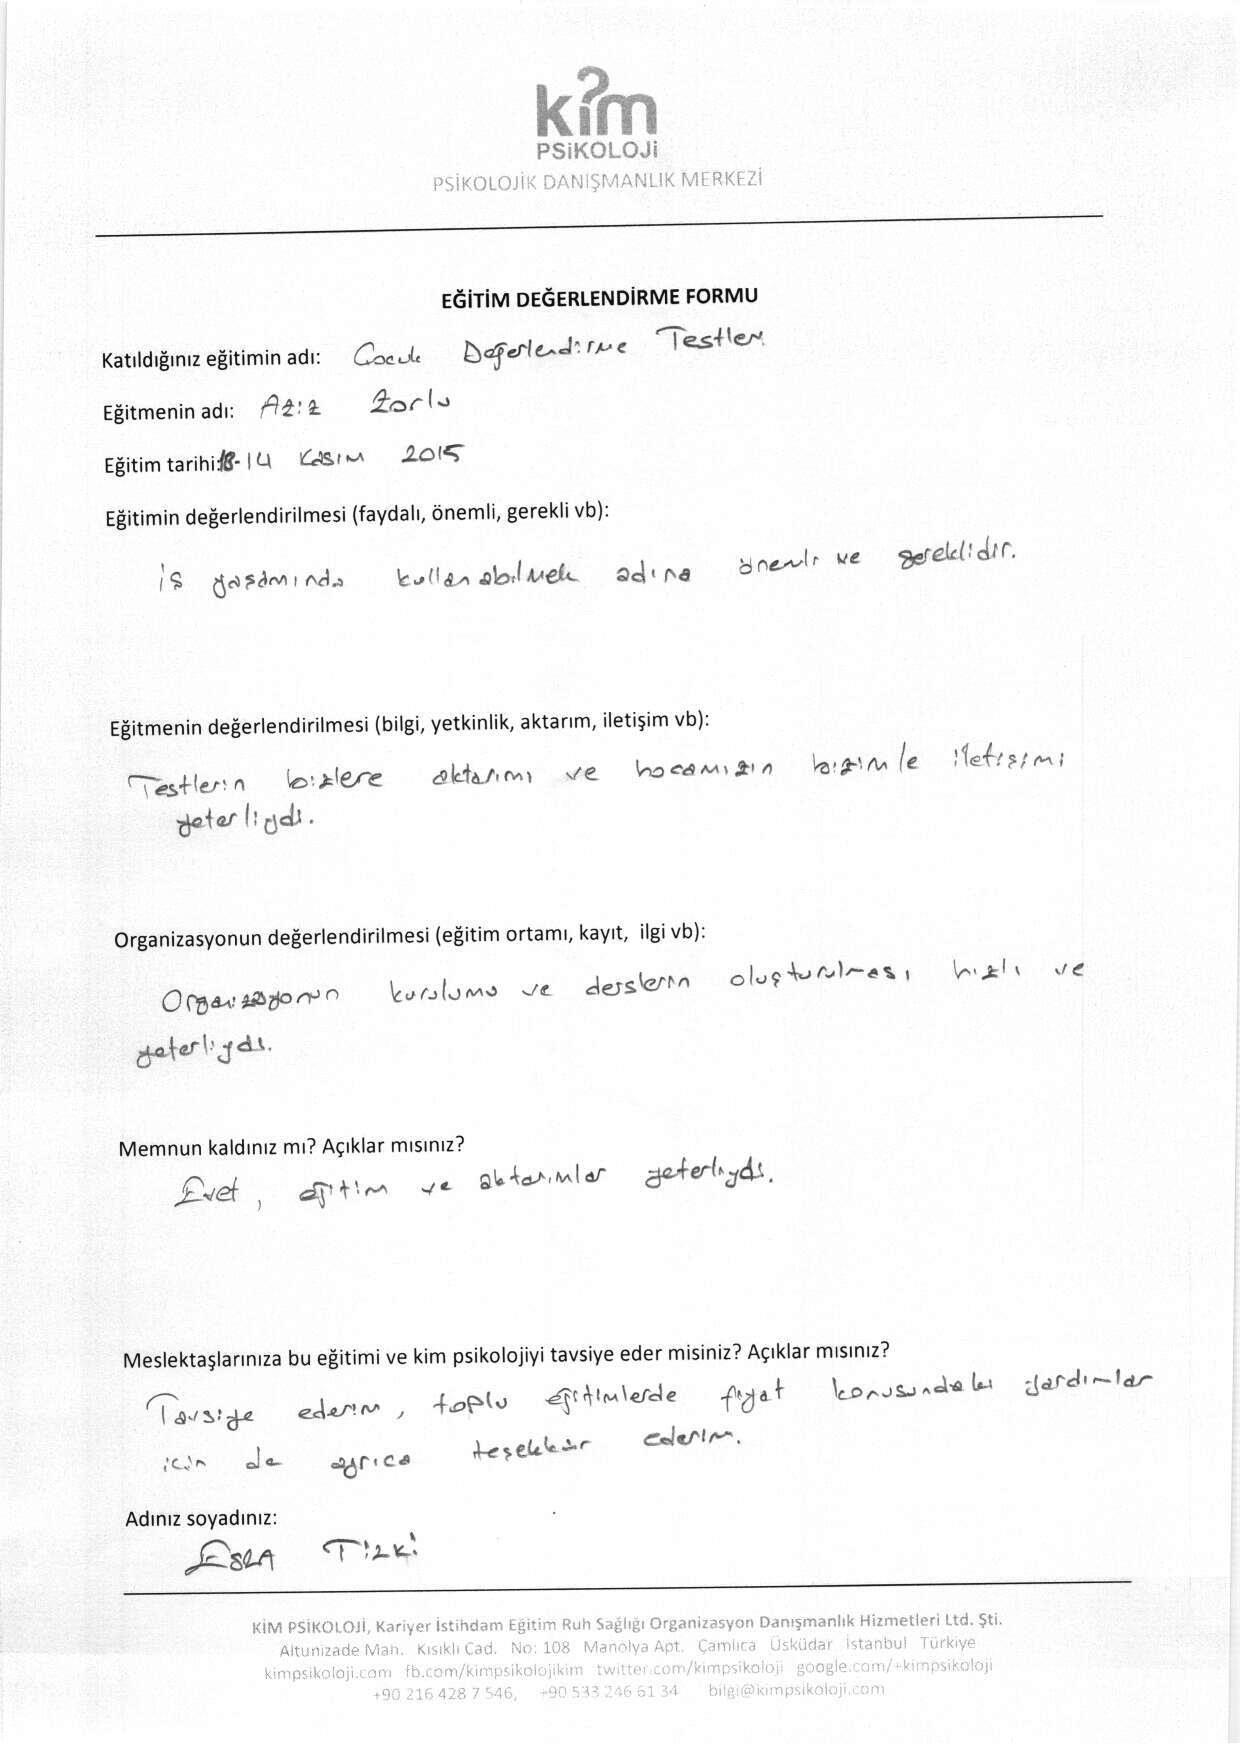 kim
PSiKOLOJi
PSİKOLOJİK DANIŞMANLIK MERKEZİ
EĞİTİM DEĞERLENDİRME FORMU
Katıldığınız eğitimin adı: Çocuk Değerlendirme Testleri
Eğitmenin adı: Aziz Zorlu
Eğitim tarihi: -14 Kasım 2015
Eğitimin değerlendirilmesi (faydalı, önemli, gerekli vb):
İş yaşamında kullanabilmek adına önemli ve gereklidir.
Eğitmenin değerlendirilmesi (bilgi, yetkinlik, aktarım, iletişim vb):
Testlerin bizlere aktarımı ve hocamızın bizimle iletişimi
yeterliydi.
Organizasyonun değerlendirilmesi (eğitim ortamı, kayıt, ilgi vb):
Organizasyonun kurulumu ve derslerin oluşturulması hızlı ve
yeterliydi.
Memnun kaldınız mı? Açıklar mısınız?
Evet, eğitim ve aktarımlar yeterliydi.
Meslektaşlarınıza bu eğitimi ve kim psikolojiyi tavsiye eder misiniz? Açıklar mısınız?
Tavsiye ederim, toplu eğitimlerde fiyat konusundaki yardımlar
için de ayrıca teşekkür ederim.
Adınız soyadınız:
ESRA TİZKİ
KİM PSİKOLOJİ, Kariyer İstihdam Eğitim Ruh Sağlığı Organizasyon Danışmanlık Hizmetleri Ltd. Şti.
Altunizade Mah. Kısıklı Cad. No: 108 Manolya Apt. Çamlıca Üsküdar İstanbul Türkiye
kimpsikoloji.com fb.com/kimpsikolojikim twitter.com/kimpsikoloji google.com/+kimpsikoloji
+90 216 428 7 546, +90 533 246 61 34 bilgi@kimpsikoloji.com